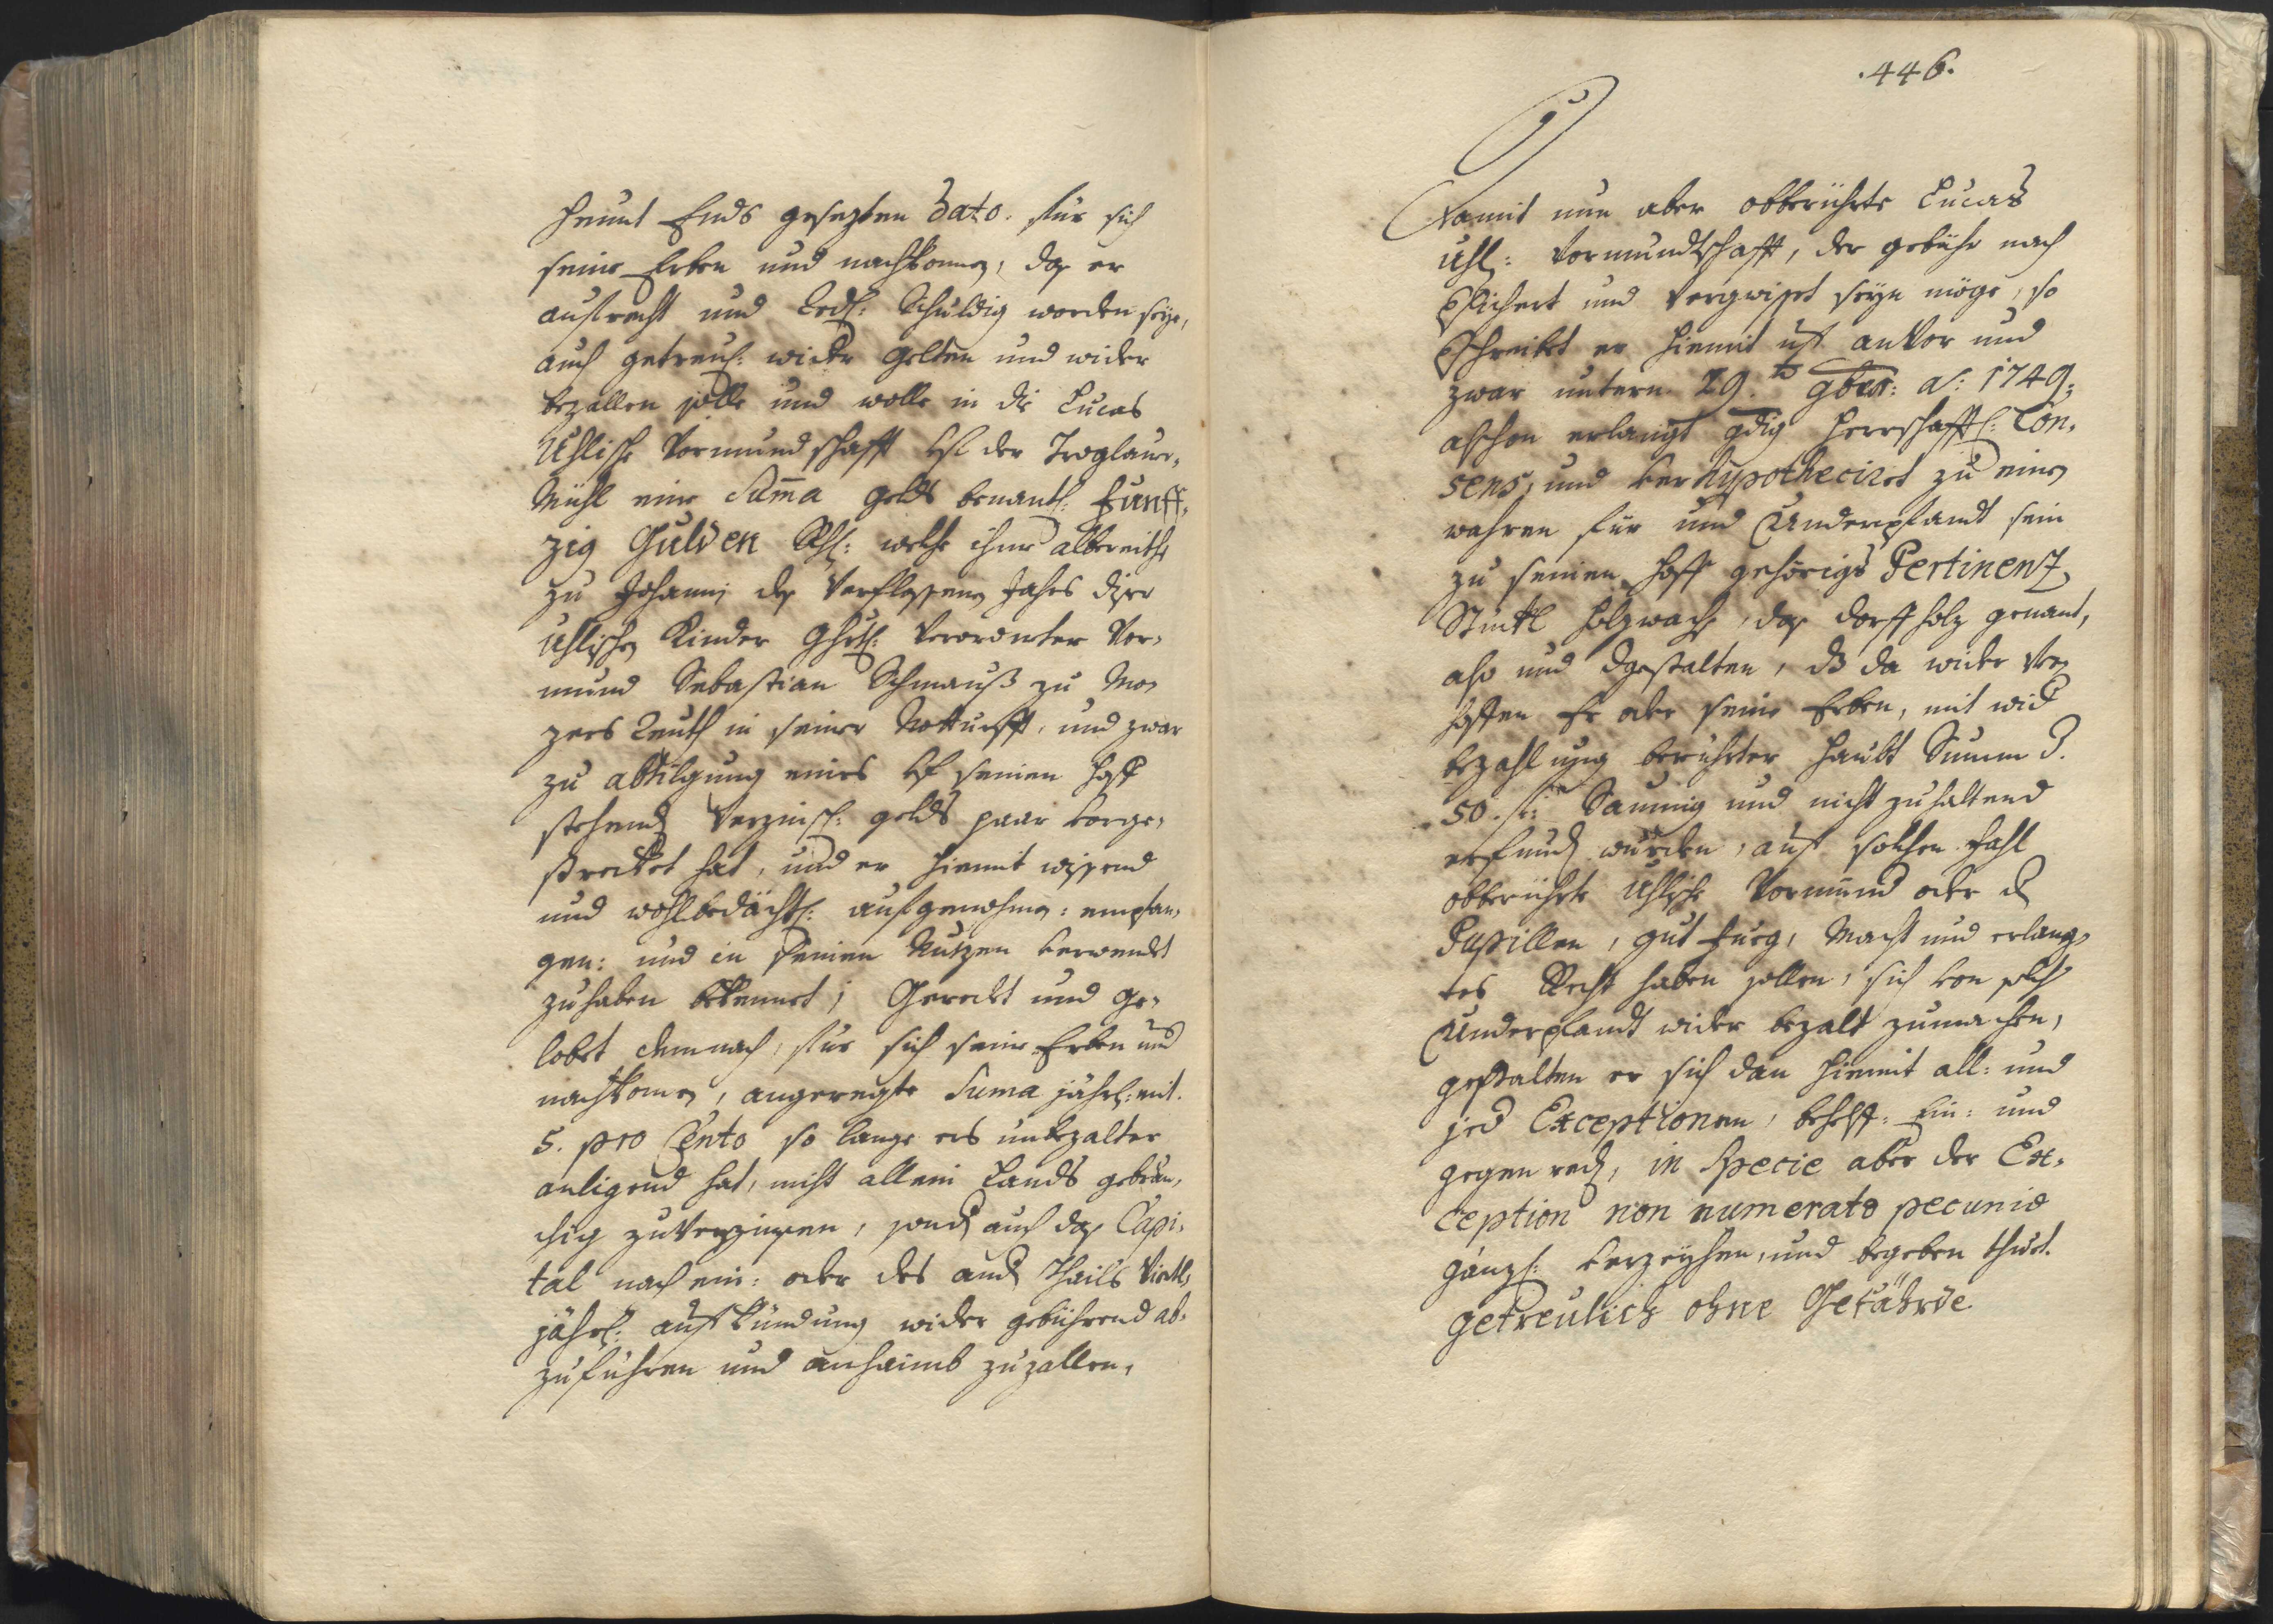 heunt Ends gesezten Dato. fur sich
seine Erben und nachkomen, das er
aufrecht und Redl: Schuldig worden seye,
auch getreul: wider gelten und wider
bezallen solle und wolle in die Lucas
Uhlische Vormundschafft auf der Troglauer„
Mühl eine Summa gelts benantl: Funff„
zig Gulden Rhl: welche ihme alberaiths
zu Johanni des Verflossenen Jahrs diser
Uhlischen Kinder Ghrtl: verordneter Vor„
mund Sebastian Schmauß zu Mo„
zers Reuth in seiner Notturfft, und zwar
zu abtilgung eines auf seinen Hoff
stehend Verzinsl: gelts paar vorge„
strecket hat, und er hiemit wissend
und wohlbedächtl: aufgenohmen: empfan„
gen: und in seinen Nutzen verwendt
zuhaben bekennet; Geredt und ge„
lobet demnach, fur sich seine Erben und
nachkomen, angeregte Suma jährl: mit
5. pro Cento so lange ers unbezalter
anligend hat, nicht allein Lands gebräu„
chig zuverzinsen, sond auch das Capi„
tal nach ein: oder des and Thails Viertl„
jährl: aufkündung wider gebührend ab„
zuführen und anhaimb zuzallen,
.446.
Damit nun aber obberührte Lucas
Uhl: Vormundtschafft, der gebühr nach
Vsichert und Vergwisset seyn möge, so
Vschreibt er hiemit uf anvor und
zwar untern 29.ten 9ber: a: 1749,
alschon erlangt gdig Herrschafftl: Con„
sens, und verhypothecirt zu einen
wahren fur und Underpfandt sein
zu seinen Hoff gehörigs Pertinenz
Stuckl Holzwachs, das Dorffholz genant,
also und dgestalten, dß da wider Ver„
hoffen Er oder seine Erben, mit wid
bezahlung berührter Haubt Summ d.
50. f: Saumig und nicht zuhaltend
erfund wurden, auf solchen Fahl
obberührte Uhlische Vormund oder d
Pupillen, gut Fueg, Macht und erlang„
tes Recht haben sollen, sich von solch
Underpfandt wider bezalt zumachen,
gestalten er sich dan hiemit all: und
jed Exceptionen, behelff: Ein: und
gegen red, in Specie aber der Ex„
ception non numerato pecunio
gänzl: verzeyhen, und begeben thuet.
getreulich ohne Gefährde